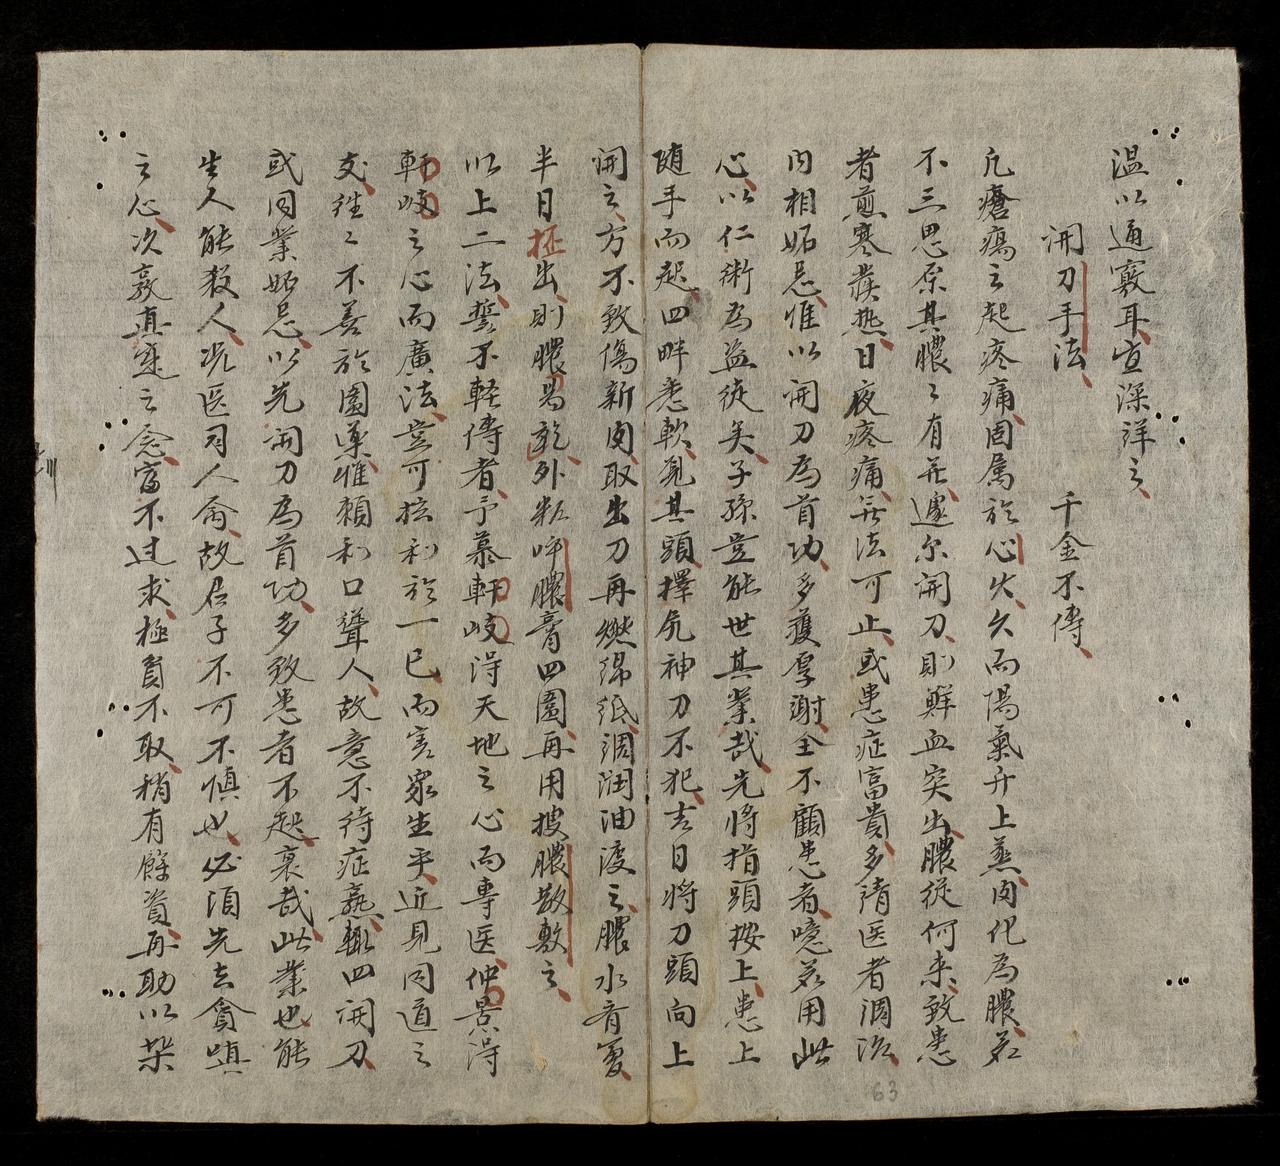 溫以通竅耳宜深詳之
開刀手法　千金不傳
凢瘡瘍之起疼痛固属於心火久而陽氣升上蒸肉化為膿若
不三思原其膿之有無遽尔開刀則鮮血突出膿従何来致患
者煎寒發熱日夜疼痛無法可止或患症富貴多請医者調治
內相妬忌惟以開刀為首功多獲厚謝全不顧患者噫若用此
心以仁術為益徒矣子孫豈能世其業哉先將指頭按上患上
随手而起四畔悉軟見其頭擇尻神刀不犯吉日將刀頭向上
開之方不致傷新肉取出刀再撚綿紙調润油渡之膿水肯夏
半日拯出則膿易乾外粘呼膿膏四圍再用搜膿散敷之
以上二法誓不軽傳者予慕軒岐淂天地之心而專医仲景淂
軒岐之心而廣法豈可拡利於一己而害衆生乎近見同道之
友徃々不善於圍藥惟賴利口聳人故意不待症熟輙四開刀
或同業妬忌以先開刀為首功多致患者不起哀哉此業也能
生人能殺人况医司人命故君子不可不慎也必須先去貪嗔
之心次敦真寔之念富不过求極貧不取稍有餘資再助以柴
63